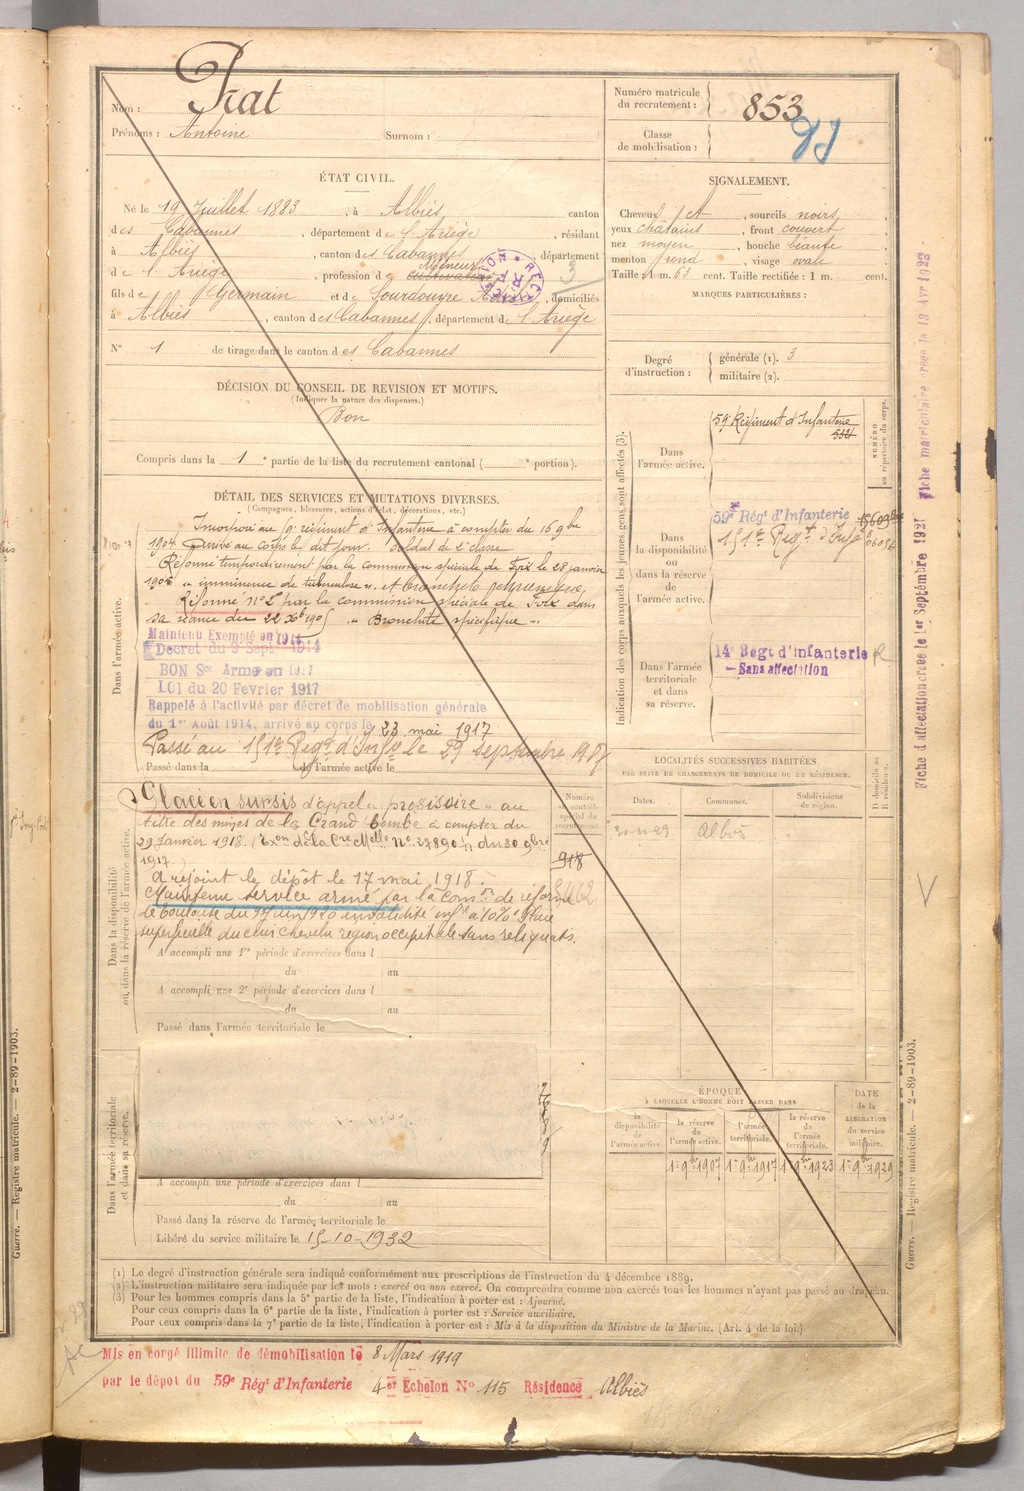 Nom : Prat
Prénoms : Antoine Surnom :
Numéro matricule du recrutement : 853
Classe de mobilisation :
ÉTAT CIVIL.
Né le 19 Juillet 1883, à Albiès canton
des Cabannes, département de l'Ariège, résidant
à Albiès, canton des Cabannes, département
de l'Ariège, profession de Mineur
fils de Germain et de Sourdouyre, domiciliés
à Albiès, canton des Cabannes, département de l'Ariège
N° 1 de tirage dans le canton des Cabannes
SIGNALEMENT.
Cheveux, sourcils noirs
yeux châtains, front couvert
nez moyen, bouche
menton rond, visage ovale
Taille : 1 m. 63 cent. Taille rectifiée : 1 m. cent.
MARQUES PARTICULIÈRES :
Degré d'instruction : générale (1). 3
militaire (2).
DÉCISION DU CONSEIL DE REVISION ET MOTIFS.
(Indiquer la nature des dispenses.)
Bon
Compris dans la 1e partie de la liste du recrutement cantonal ( e portion).
DÉTAIL DES SERVICES ET MUTATIONS DIVERSES.
(Campagnes, blessures, actions d'éclat, décorations, etc.)
Dans l'armée active.
Incorporé au régiment d'Infanterie à compter du 16 9bre
1904. Arrivé au corps le dit jour. Soldat de 2e classe
Réformé temporairement par la commission spéciale de Foix le 28 janvier
1905 "imminence de tuberculose".
Réformé n° 2 par la commission spéciale de Foix dans
sa séance du 22 Xbre 1905 "Bronchite spécifique".
Maintenu Exempté en 1914
Décret du 9 Sept 1914
BON Sce Armé en 1917
LOI du 20 Fevrier 1917
Rappelé à l'activité par décret de mobilisation générale
du 1er Août 1914, arrivé au corps le 23 mai 1917
Passé au 151e Regt d'Infie le 29 septembre 1917
Passé dans la de l'armée active le
Dans la disponibilité ou, dans la réserve de l'armée active.
Placé en sursis d'appel "provisoire" au
titre des mines de la Grand Combe à compter du
29 Janvier 1918. (
1917.)
A rejoint le dépôt le 17 mai 1918.
Maintenu service armé par la comon de réforme
de Toulouse du 9 Juin 1920 invalidité infre à 10%
superficielle du cuir chevelu region occipitale sans reliquats.
A accompli une 1re période d'exercices dans l
du au
A accompli une 2e période d'exercices dans l
du au
Passé dans l'armée territoriale le
Dans l'armée territoriale et dans sa réserve.
A accompli une période d'exercices dans l
du au
Passé dans la réserve de l'armée territoriale le
Libéré du service militaire le 15-10-1932
Numéro au contrôle spécial du recrutement.
918
Indication des corps auxquels les jeunes gens sont affectés (3).
NUMÉRO au répertoire du corps.
Dans l'armée active.
59e Régiment d'Infanterie
Dans la disponibilité ou dans la réserve de l'armée active.
59e Régt d'Infanterie
151e Regt d'Infie
Dans l'armée territoriale et dans sa réserve.
14e Régt d'infanterie
— Sans affectation
LOCALITÉS SUCCESSIVES HABITÉES
PAR SUITE DE CHANGEMENTS DE DOMICILE OU DE RÉSIDENCE.
Dates. Communes. Subdivisions de région. D domicile ou R résidence.
Albiès
ÉPOQUE
À LAQUELLE L'HOMME DOIT PASSER DANS
la disponibilité de l'armée active. la réserve de l'armée active. l'armée territoriale. la réserve de l'armée territoriale.
DATE de la LIBÉRATION du service militaire.
1er 9bre 1907 1er 9bre 1917 1er 9bre 1923 1er 9bre 1929
(1) Le degré d'instruction générale sera indiqué conformément aux prescriptions de l'instruction du 4 décembre 1889.
(2) L'instruction militaire sera indiquée par les mots : exercé ou non exercé. On comprendra comme non exercés tous les hommes n'ayant pas passé au drapeau.
(3) Pour les hommes compris dans la 5e partie de la liste, l'indication à porter est : Ajourné.
Pour ceux compris dans la 6e partie de la liste, l'indication à porter est : Service auxiliaire.
Pour ceux compris dans la 7e partie de la liste, l'indication à porter est : Mis à la disposition du Ministre de la Marine. (Art. 4 de la loi.)
Mis en congé illimité de démobilisation le 8 Mars 1919
par le dépot du 59e Régt d'Infanterie 4er Echelon N° 115 Résidence Albiès
Fiche d'affectation créée le 1er Septembre 1921 Fiche matriculaire créée le 13 Avr 1923
Guerre. — Registre matricule. — 2-89-1903.
Guerre. — Registre matricule. — 2-89-1903.